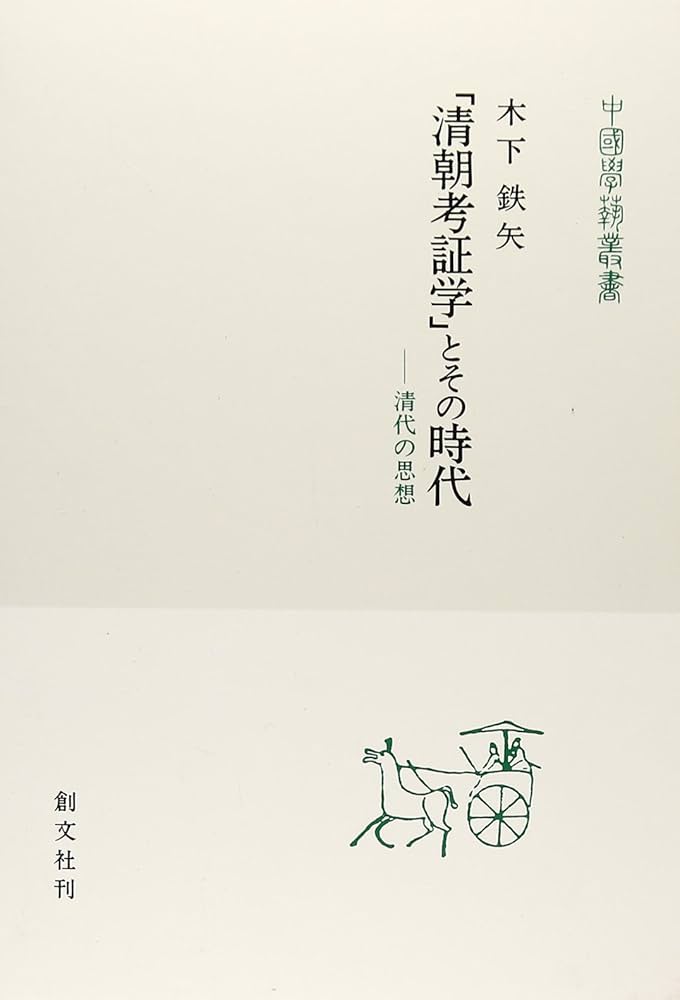 中國學藝叢書
木下 鉄矢
「清朝考証学」とその時代
——清代の思想
創文社刊